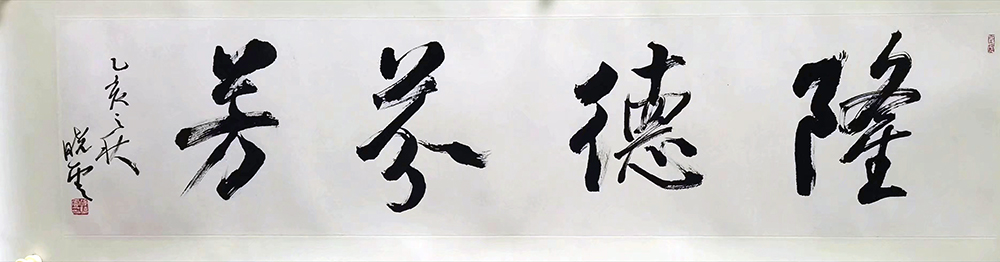 隆德芬芳
乙亥之秋
晓雲